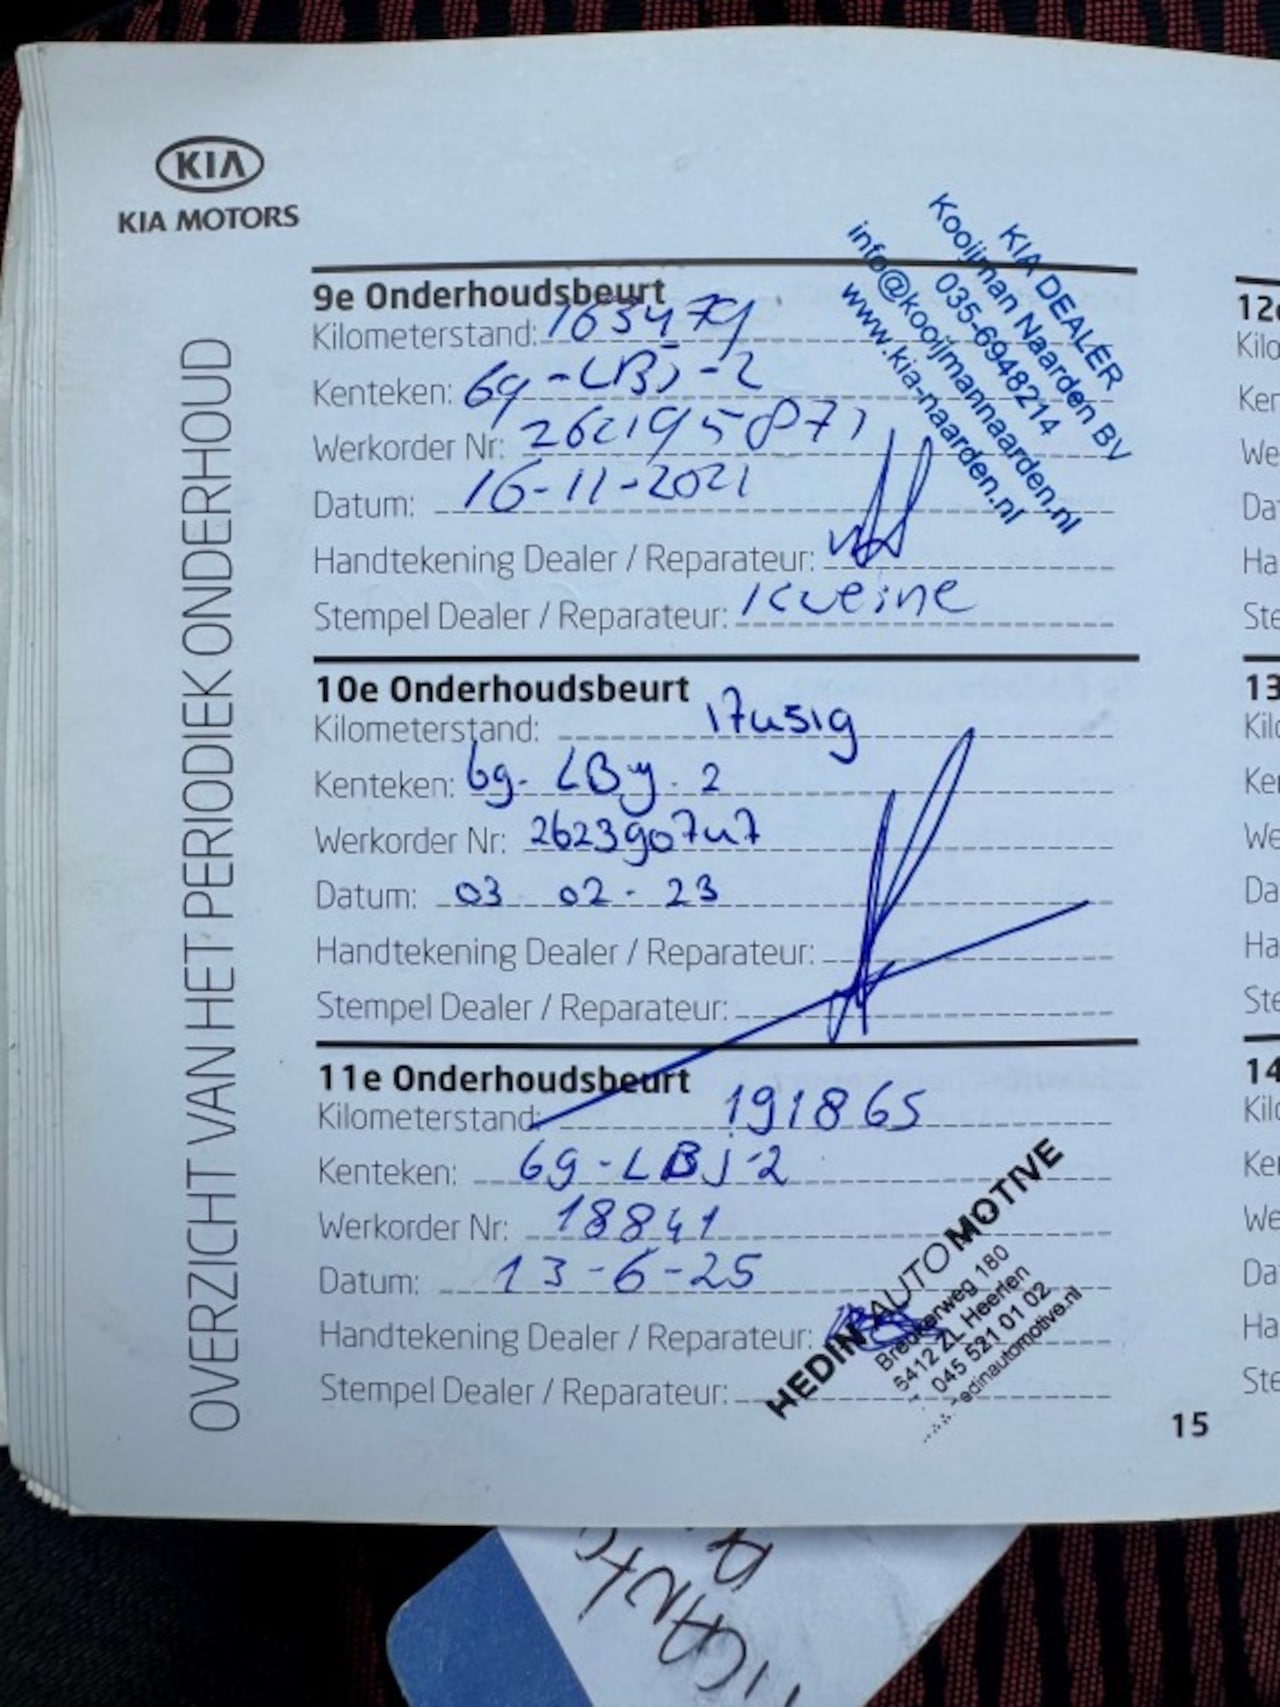 KIA
KIA MOTORS
OVERZICHT VAN HET PERIODIEK ONDERHOUD
9e Onderhoudsbeurt
Kilometerstand: 163479
Kenteken: 69-LBJ-2
Werkorder Nr:
Datum: 16-11-2021
Handtekening Dealer / Reparateur:
Stempel Dealer / Reparateur:
KIA DEALER
Kooijman Naarden BV
035-6948214
info@kooijmannaarden.nl
www.kia-naarden.nl
10e Onderhoudsbeurt
Kilometerstand: 174519
Kenteken: 69-LBJ-2
Werkorder Nr: 262390747
Datum: 03 02-23
Handtekening Dealer / Reparateur:
Stempel Dealer / Reparateur:
11e Onderhoudsbeurt
Kilometerstand: 191865
Kenteken: 69-LBJ-2
Werkorder Nr: 18841
Datum: 13-6-25
Handtekening Dealer / Reparateur:
Stempel Dealer / Reparateur:
HEDIN AUTOMOTIVE
180
6412 ZL Heerlen
045 521 01 02
edinautomotive.nl
15
12e
Kilo
Ken
We
Da
Ha
Ste
13
Kilo
Ke
We
Da
Ha
Ste
14
Kilo
Ke
We
Da
Ha
Ste